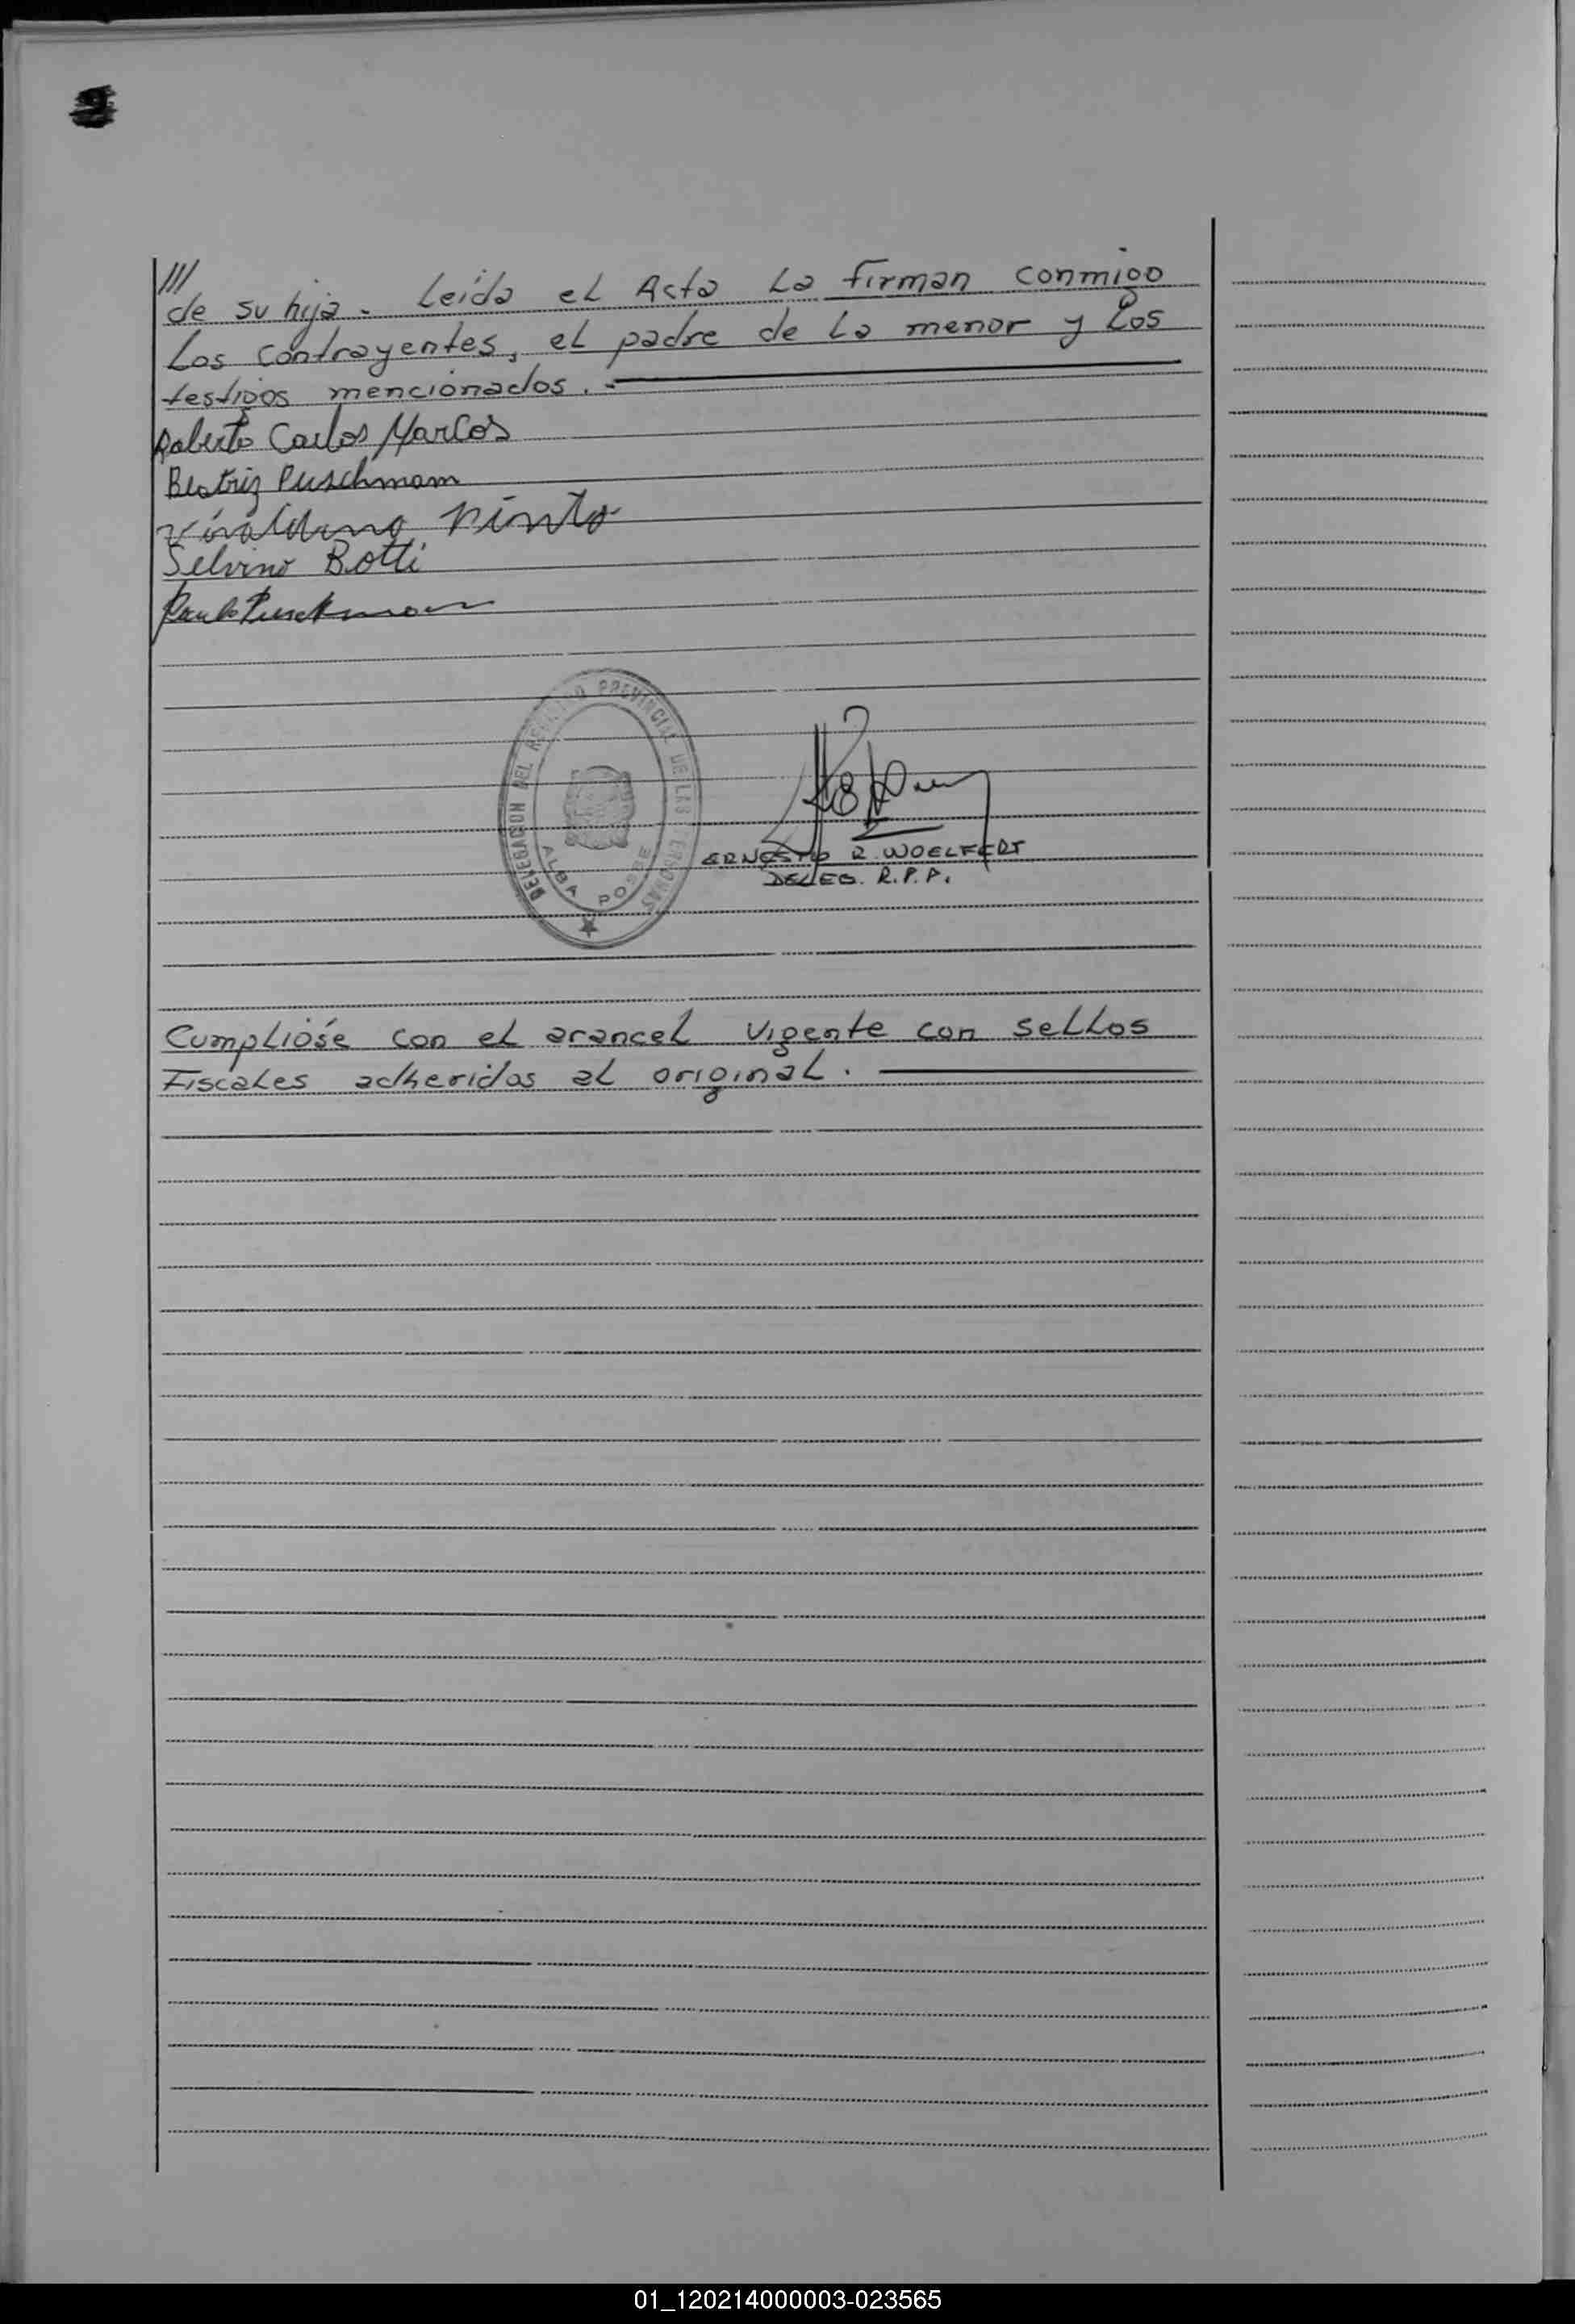 ///
de su hija. Leída el Acta La firman conmigo
Los contrayentes, el padre de La menor y Los
testigos mencionados.-
Roberto Carlos Marcos
Beatriz Puschmam
Pinto
Selvino Botti
DELEGACION DEL REGISTRO PROVINCIAL DE LAS PERSONAS
ALBA POSSE
ERNESTO R. WOELFERT
DELEG. R.P.P.
Cumplióse con el arancel vigente con sellos
Fiscales adheridos al original.
01_120214000003-023565